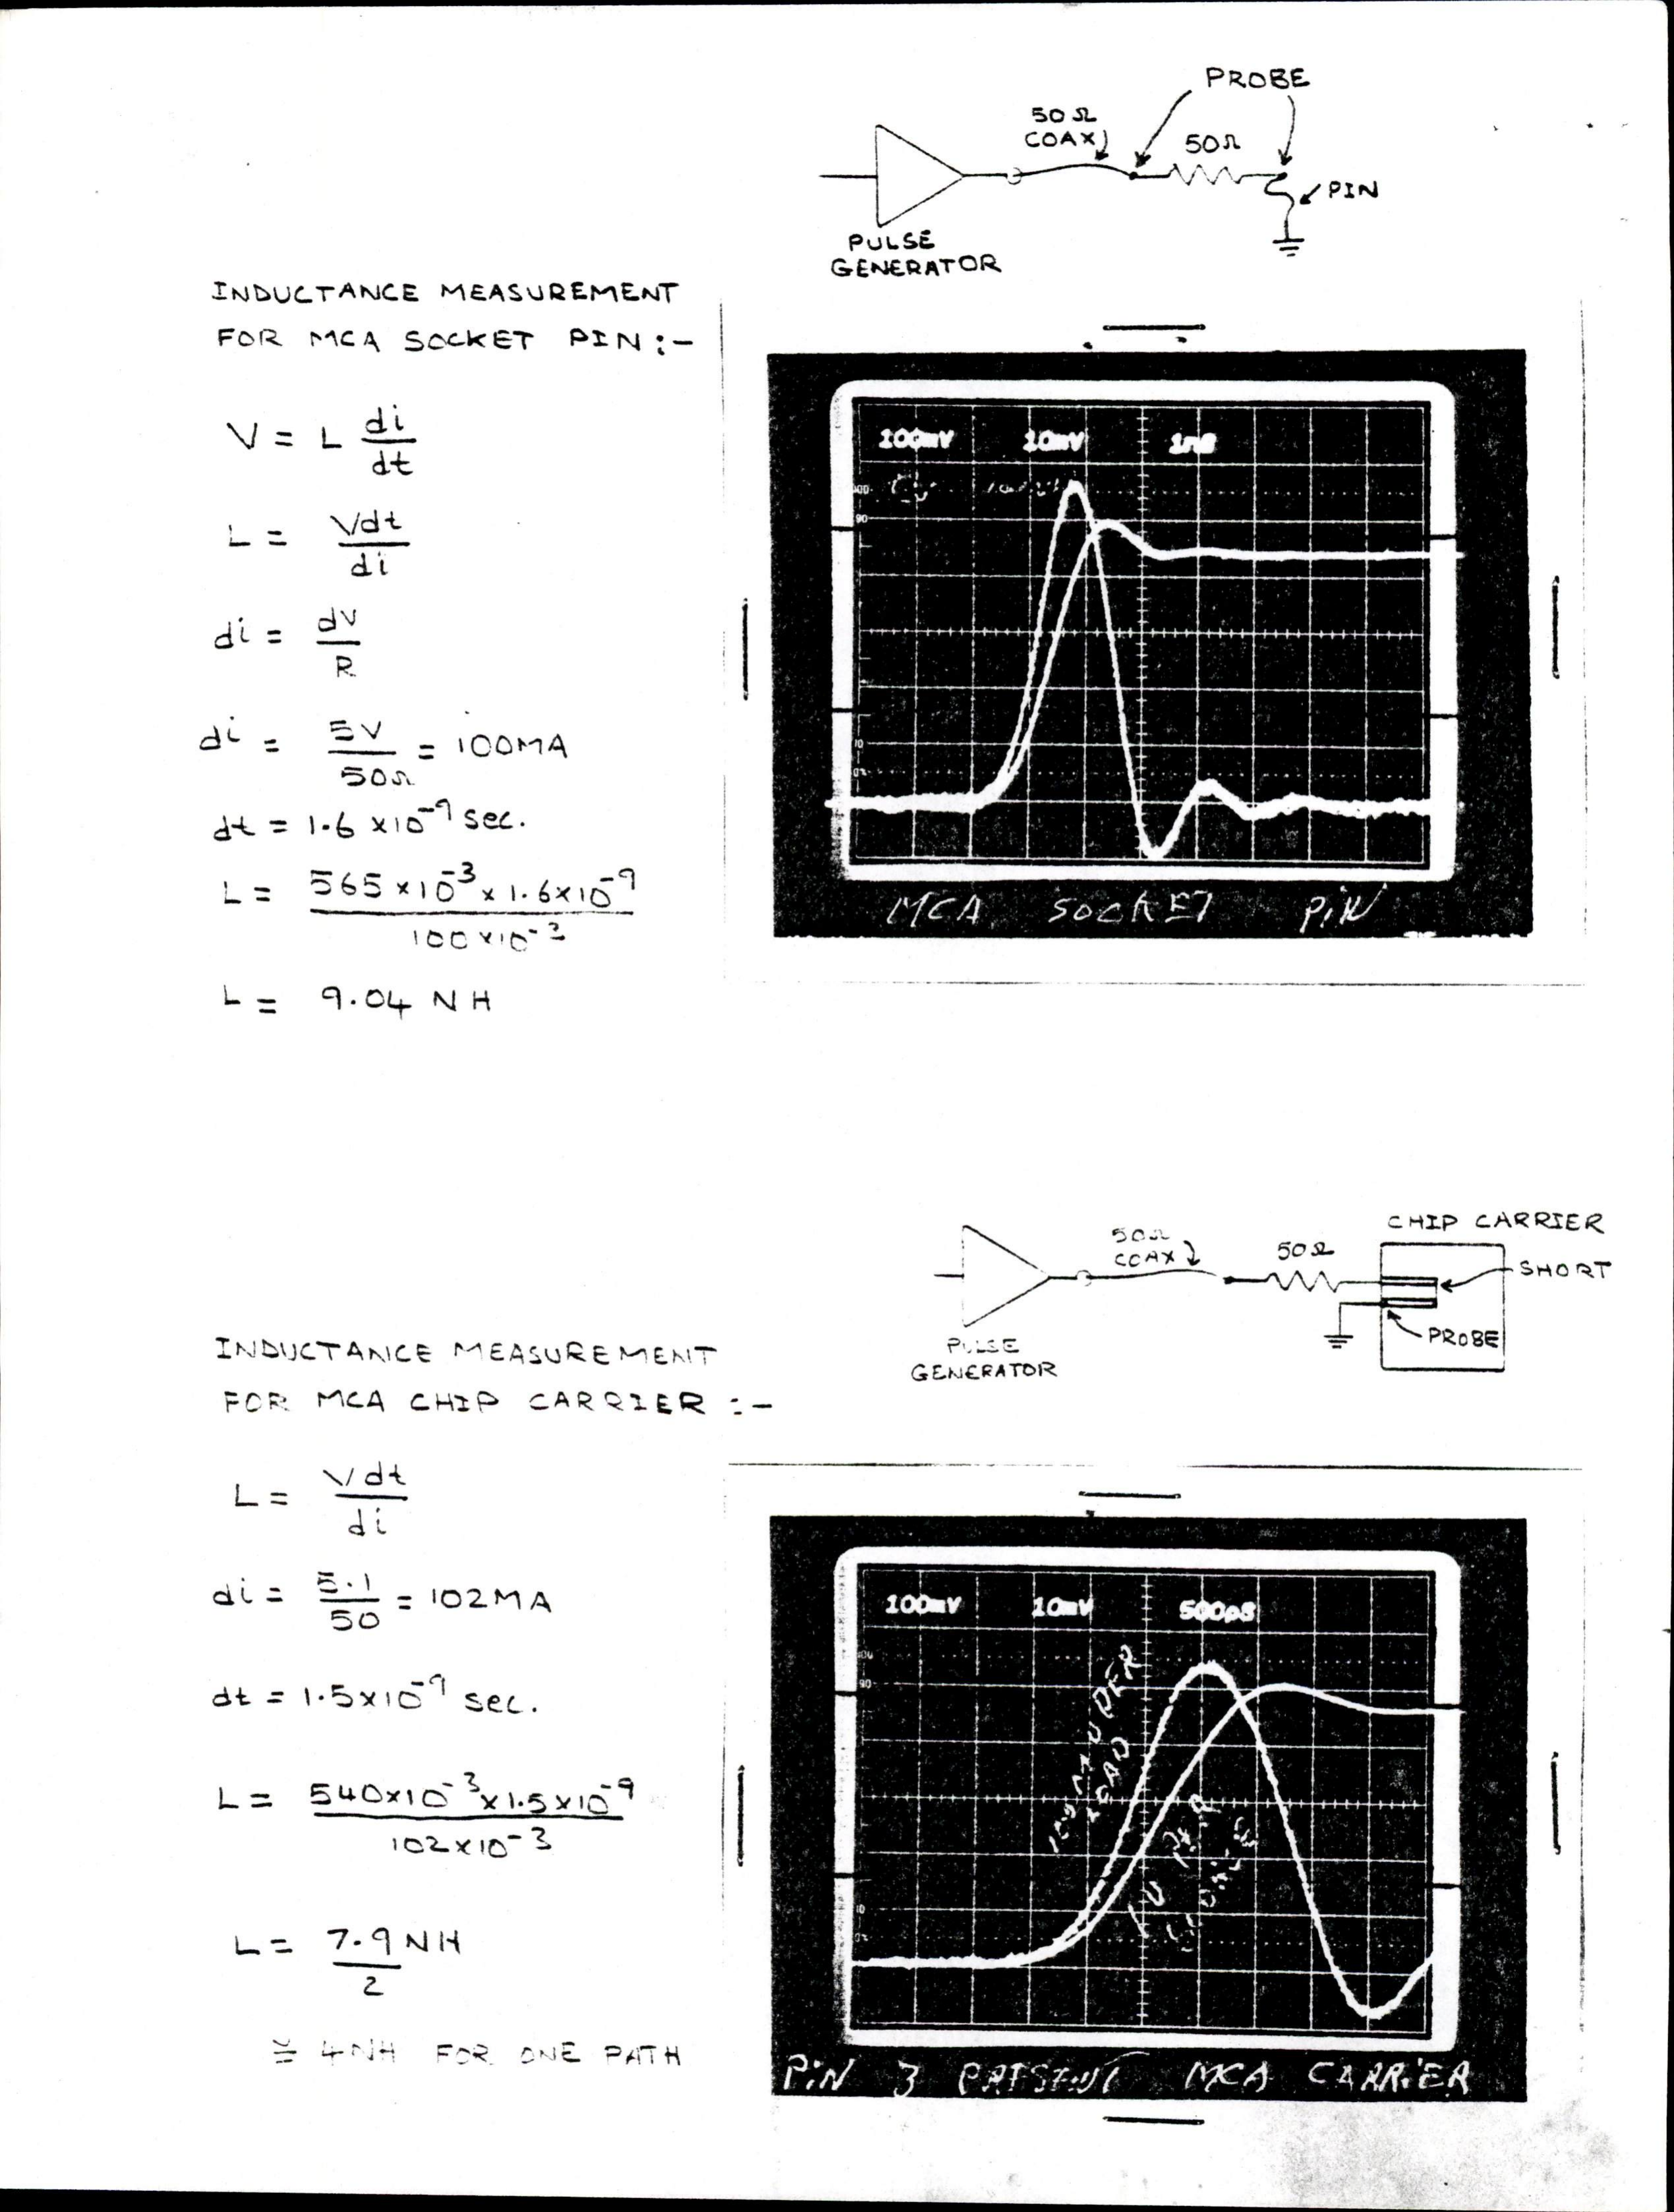 PROBE
50Ω
COAX
50Ω
PIN
PULSE
GENERATOR
INDUCTANCE MEASUREMENT
FOR MCA SOCKET PIN :-
V = L di/dt
L = Vdt/di
di = dv/R
di = 5V/50Ω = 100MA
dt = 1.6 x10⁻⁹ sec.
L = 565 x10⁻³ x 1.6x10⁻⁹ / 100 x10⁻³
L = 9.04 NH
100mV 10mV 1nS
100
90
10
0%
MCA SOCKET PIN
CHIP CARRIER
50Ω
COAX
50Ω
SHORT
PROBE
PULSE
GENERATOR
INDUCTANCE MEASUREMENT
FOR MCA CHIP CARRIER :-
L = Vdt/di
di = 5.1/50 = 102MA
dt = 1.5x10⁻⁹ sec.
L = 540x10⁻³x1.5x10⁻⁹ / 102x10⁻³
L = 7.9NH/2
≅ 4NH FOR ONE PATH
100mV 10mV 500pS
100
90
10
0%
PIN 3 PRESENT MCA CARRIER